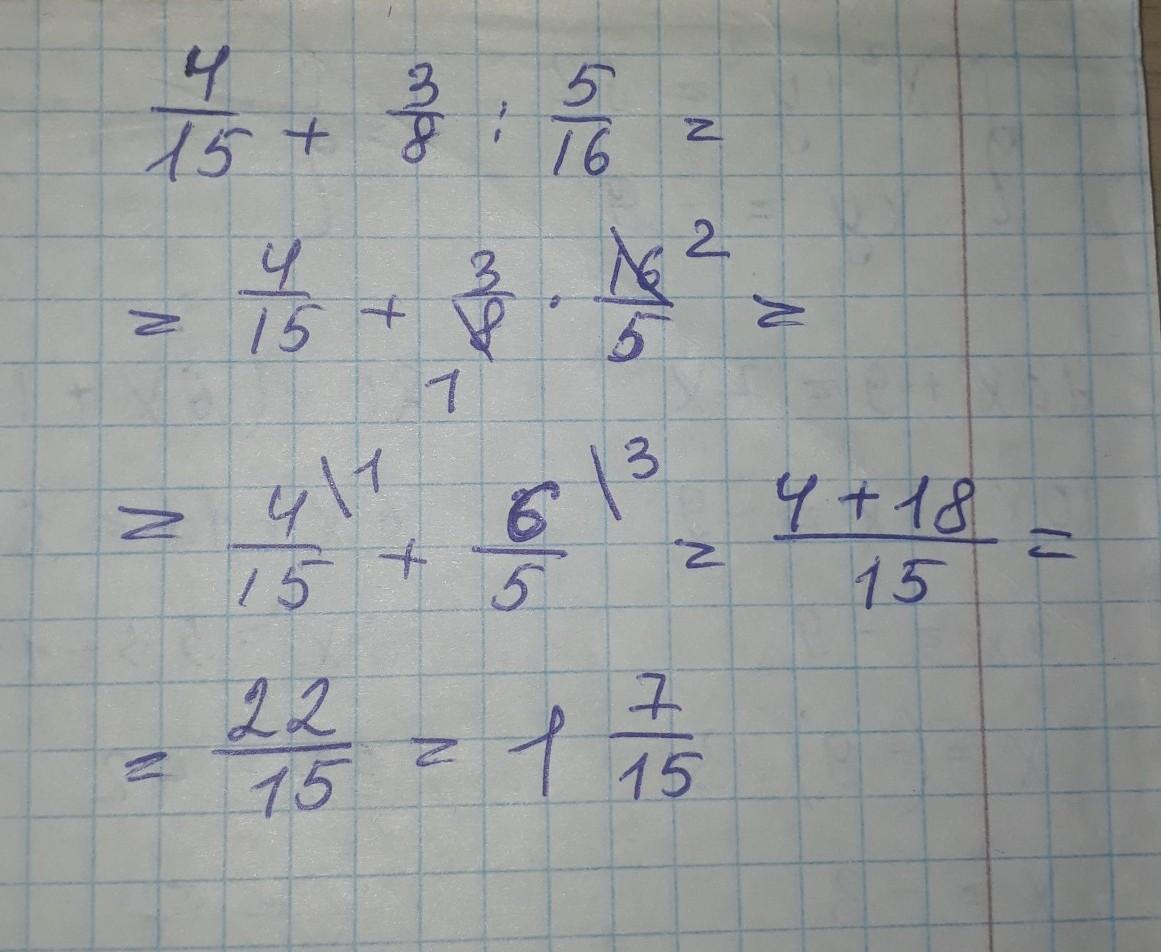 4/15 + 3/8 : 5/16 =
= 4/15 + 3/8 1 · 16/5 2 =
= 4/15 \1 + 6/5 \3 = 4+18/15 =
= 22/15 = 1 7/15